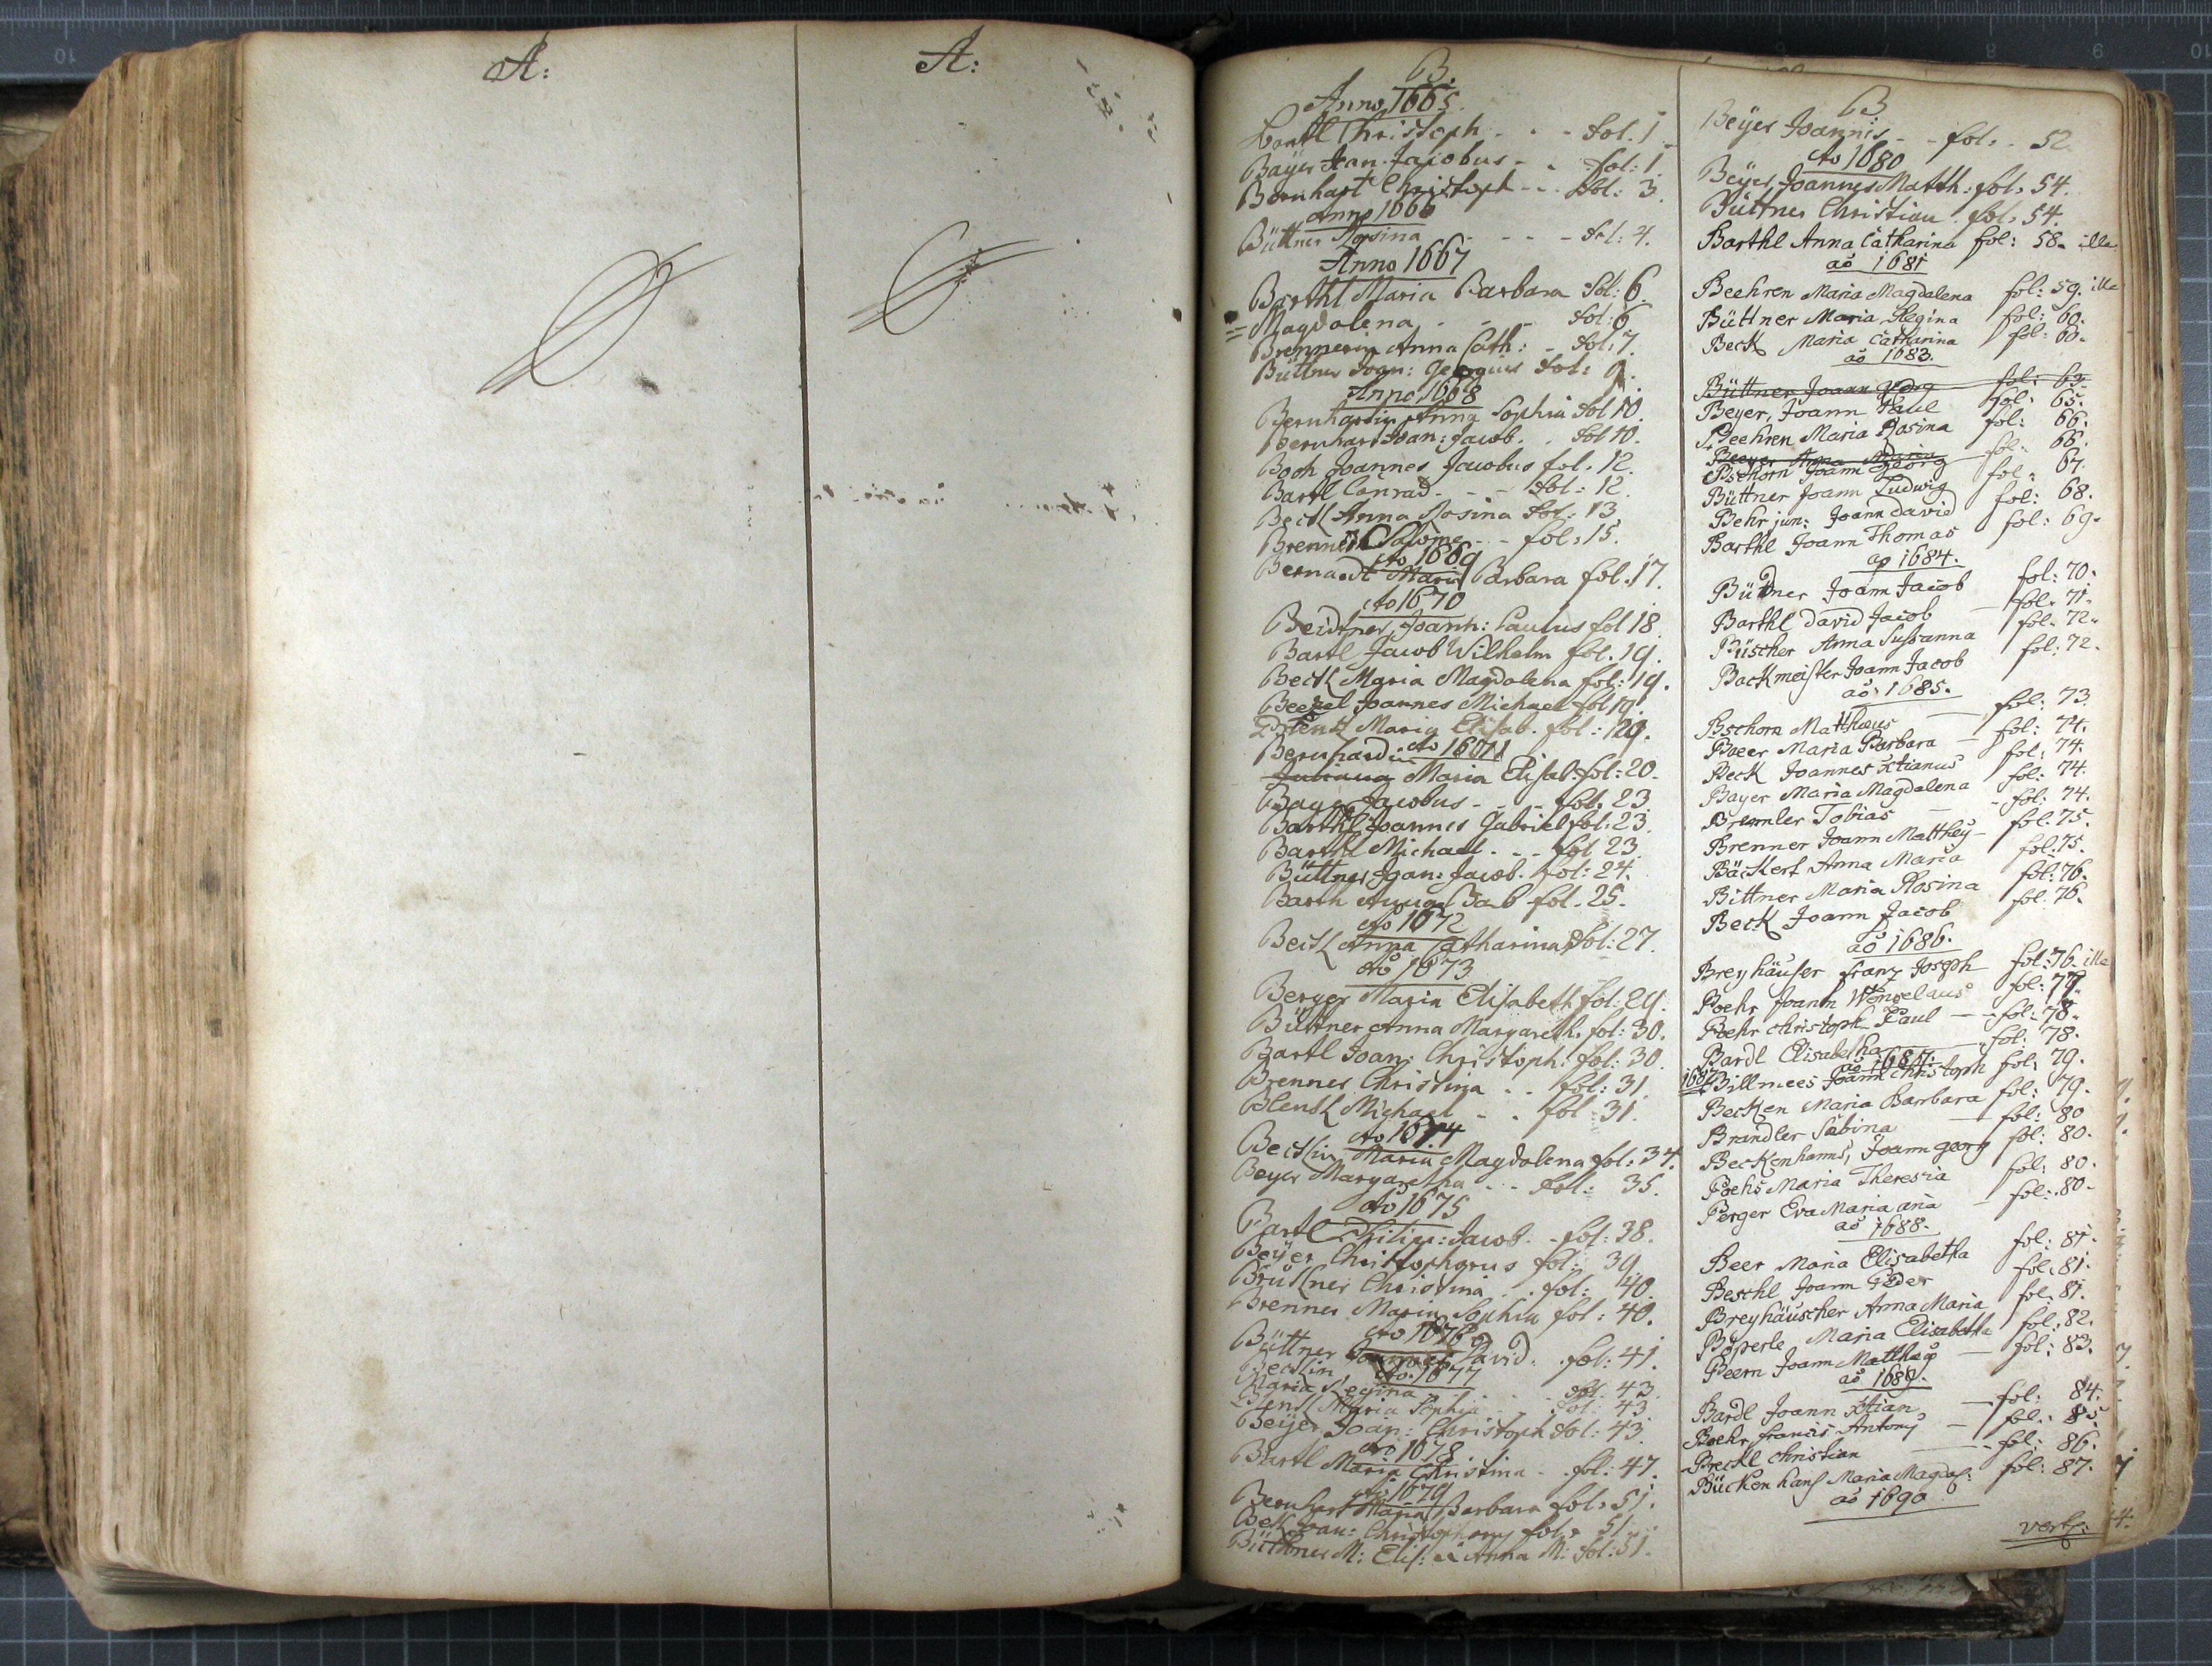 A:
A:
B.
Anno 1665.
Bartl Christoph - - - Fol. 1
Bayer Joan. Jacobus - - fol: 1.
Bernhart Christoph - - fol: 3.
Anno 1666
Büttner Rosina - - - - fol: 4.
Anno 1667
Barthl Maria Barbara Fol: 6.
= Magdalena - - - Fol: 6
Brennerin Anna Cath: - Fol: 7.
Büttner Joan: Georgius Fol: 9.
Anno 1668
Bernhardin Anna Sophia Fol 10.
Bernhart Joan: Jacob. . Fol 10.
Boch Joannes Jacobus fol. 12.
Bartl Conrad. - - - Fol: 12.
Beckh Anna Rosina Fol: 13
Brennerin Salome - - fol. 15.
Ao 1669
Bernardt Maria Barbara fol. 17.
Ao 1670
Beidtner, Joann: Paulus fol 18.
Bartl Jacob Wilhelm fol. 19.
Beckh Maria Magdalena fol: 19.
Joannes Michael fol 19.
Maria Elisab. fol: 19.
Ao 1671
Bernhardin
Juliana Maria Elisab. fol: 20.
Bayer Jacobus - - - fol: 23.
Barthl Joannes Gabriel fol: 23.
Barthl Michael. - - fol 23.
Büttner Joan: Jacob. fol: 24.
Barth fol. 25.
Ao 1672
Beckh Anna Catharina, fol: 27.
Ao 1673
Berger Maria Elisabeth fol: 29.
Büttner Anna Margareth. fol: 30.
Bartl Joan: Christoph: fol: 30.
Brenner Christina . . fol: 31.
Michael - . fol: 31.
Ao 1674
Beckhin Maria Magdalena fol: 34.
Beyer Margaretha - - - fol: 35.
Ao 1675
Bartl Philipp: Jacob. - fol: 38.
Beÿer Christophorus fol: 39.
Bruckner Christina . . fol: 40.
Brenner Maria Sophia fol: 40.
Ao 1676
Büttner Joannes David. . fol: 41.
Ao. 1677
Beckhin,
Maria Regina - - - - fol. 43.
Maria Sophia - - fol: 43
Beÿer Joan: Christoph fol: 43.
Ao 1678
Bartl Maria Christina - . fol: 47.
Ao 1679
Bernhart Maria Barbara fol: 51.
Beck Joan: fol: 51.
Büttner M: Elis: Anna M: fol: 51.
B
Beÿer Joannis - - fol: . 52.
Ao 1680
Beÿer, Joannes Matth: fol: 54.
Büttner Christian. fol: 54.
Barthl Anna Catharina fol: 58. ille
aō 1681
Beehren Maria Magdalena fol: 59. ille
Büttner Maria Regina fol: 60.
Beck Maria Catharina fol: 60.
aō 1683.
Büttner Joann Georg fol: 63.
Beyer, Joann Paul fol: 65.
Beehren Maria Rosina fol: 66.
Beeyer Anna Maria fol: 66.
Pschorn Joann Georg fol: 67.
Büttner Joann Ludwig
Behr jun: Joann David fol: 68.
Barthl Joann Thomas fol: 69.
ao 1684.
Büttner Joann Jacob fol: 70.
Barthl David Jacob - fol. 71.
Büscher Anna Sussanna fol. 72.
Backmeister Joann Jacob fol: 72.
aō 1685.
Pschorn Matthæus - fol: 73.
Baeer Maria Barbara - fol: 74.
Beck Joannes Xtianus fol: 74.
Bayer Maria Magdalena fol: 74.
Bremler Tobias - - fol: 74.
Brenner Joann Matthey - fol: 75.
Bäckert Anna Maria fol: 75.
Bittner Maria Rosina fol: 76.
Beck Joann Jacob fol. 76.
aō 1686.
Breyhäuser Franz Joseph fol: 76. ille
Boehr Joann Wenzelaus fol: 77.
Boehr Christoph Paul - - fol: 78.
Bardl Elisabetha - fol: 78.
ao 1687.
1687 Billmees Joann Christoph fol: 79.
Becken Maria Barbara fol: 79.
Brandler Sabina - fol: 80
Beckenhanns, Joann georg fol: 80.
Poehs Maria Theresia fol: 80.
Perger Eva Maria ana - fol: 80.
aō 1688.
Beer Maria Elisabetha fol: 81.
Beschl Joann Peder fol: 81.
Breyhäuscher Anna Maria fol: 81.
Böperle Maria Elisabetha fol: 82.
Beern Joann Mattheg - fol: 83.
aō 1689.
Bardl Joann Xtian - fol: 84.
Boehr Francis Antony - fol: 85.
Brechl Christian - - fol: 86.
Bückenhans Maria Magdal: fol: 87.
aō 1690
verte: